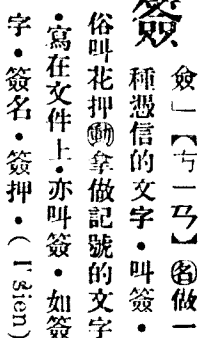 簽
僉」【ㄘㄧㄢ】名做一
種憑信的文字・叫簽・
俗叫花押動拿做記號的文字
・寫在文件上・亦叫簽・如簽
字・簽名・簽押・(T'sien)